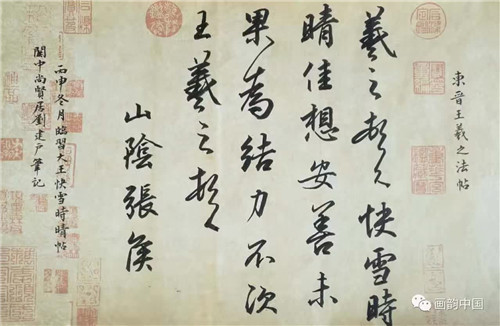 東晉王羲之法帖
羲之頓首快雪時
晴佳想安善未
果為結力不次
王羲之頓首
山陰張侯
丙申冬月臨習大王快雪時晴帖
關中尚賢居劉建戶筆記
画韵中国